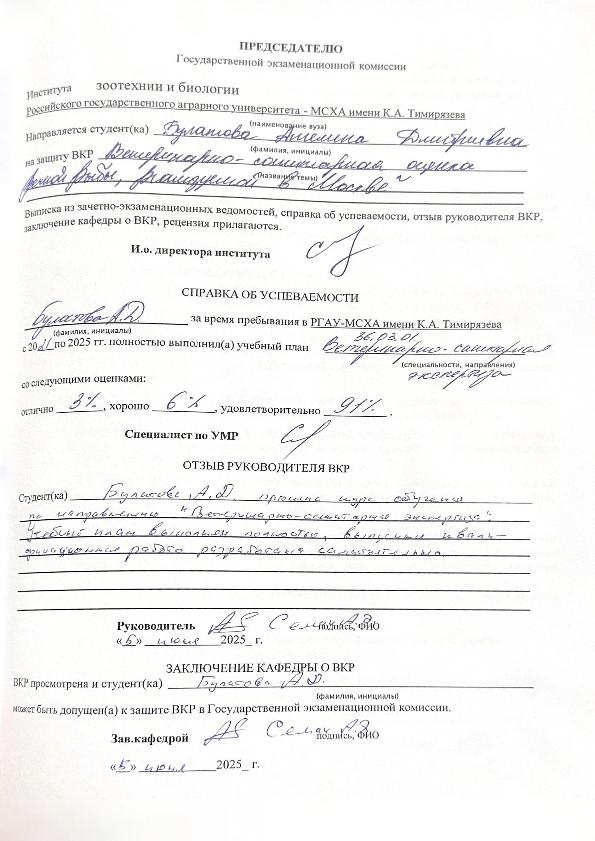 ПРЕДСЕДАТЕЛЮ
Государственной экзаменационной комиссии
Института зоотехнии и биологии
Российского государственного аграрного университета - МСХА имени К.А. Тимирязева
(наименование вуза)
Направляется студент(ка) Булатова Амелина Дмитриевна
(фамилия, инициалы)
на защиту ВКР Ветеринарно-санитарная оценка
(название темы)
рыбы, реализуемой в Москве"
Выписка из зачетно-экзаменационных ведомостей, справка об успеваемости, отзыв руководителя ВКР,
заключение кафедры о ВКР, рецензия прилагаются.
И.о. директора института
СПРАВКА ОБ УСПЕВАЕМОСТИ
Булатова А.Д за время пребывания в РГАУ-МСХА имени К.А. Тимирязева
(фамилия, инициалы)
36.03.01
с 2021 по 2025 гг. полностью выполнил(а) учебный план Ветеринарно-санитарная
(специальности, направления)
экспертиза
со следующими оценками:
отлично 3%, хорошо 6%, удовлетворительно 91%.
Специалист по УМР
ОТЗЫВ РУКОВОДИТЕЛЯ ВКР
Студент(ка) Булатова А.Д. прошла курс обучения
по направлению "Ветеринарно-санитарная экспертиза".
Учебный план выполнен полностью, выпускная квали-
фикационная работа разработана самостоятельно.
Руководитель Семак А.Э
подпись, ФИО
«5» июня 2025_ г.
ЗАКЛЮЧЕНИЕ КАФЕДРЫ О ВКР
ВКР просмотрена и студент(ка) Булатова А.Д.
(фамилия, инициалы)
может быть допущен(а) к защите ВКР в Государственной экзаменационной комиссии.
Зав.кафедрой Семак А.Э
подпись, ФИО
«5» июня 2025_ г.